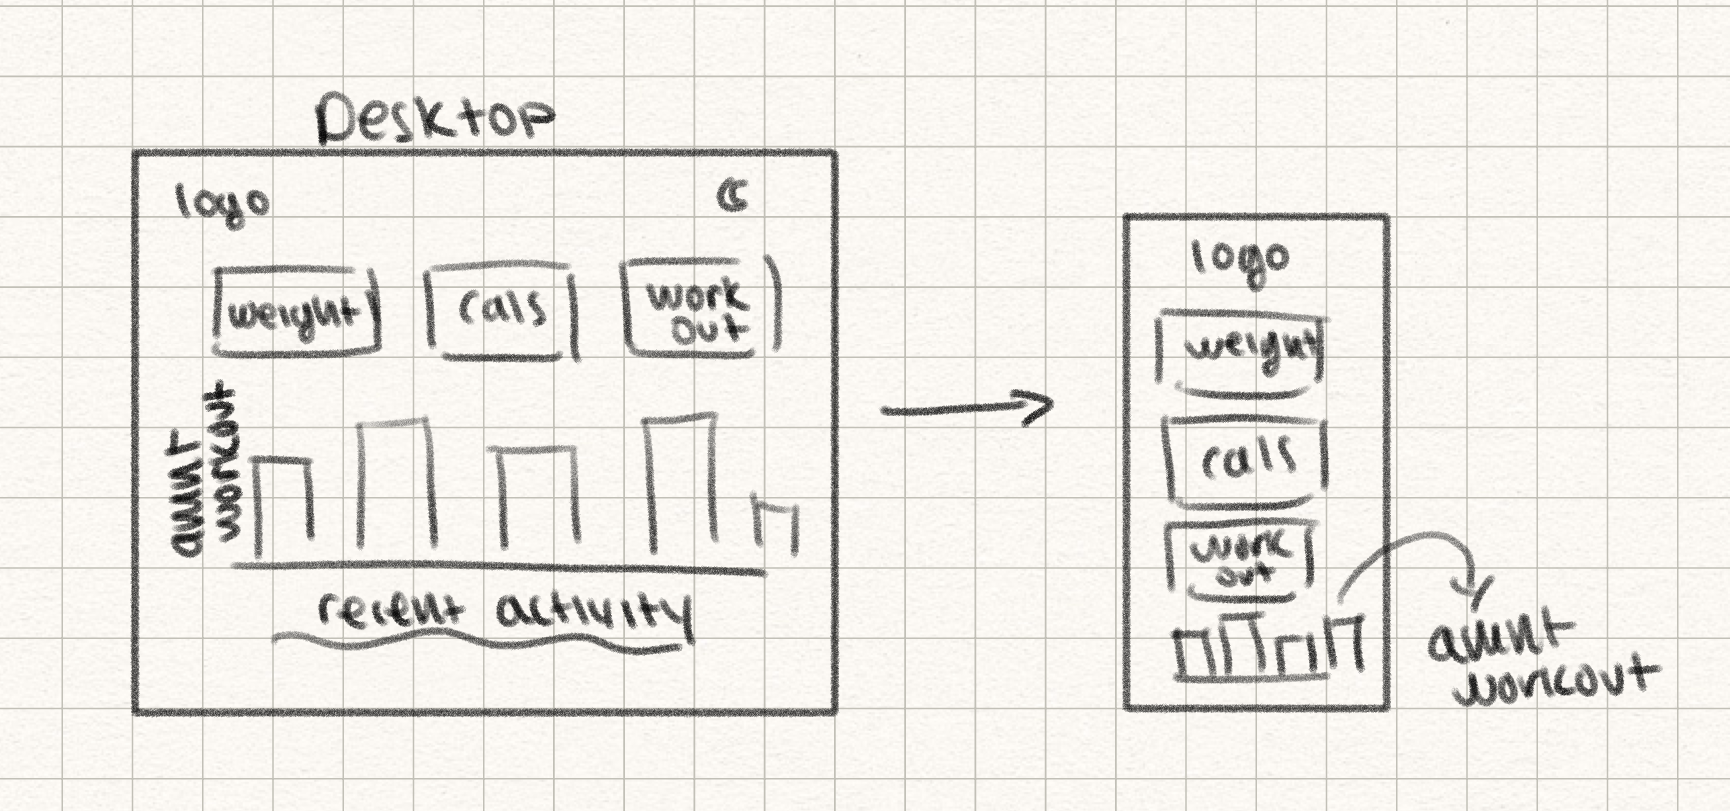 Desktop
logo
weight
cals
work
out
amnt
workout
recent activity
logo
weight
cals
work
out
amnt
workout